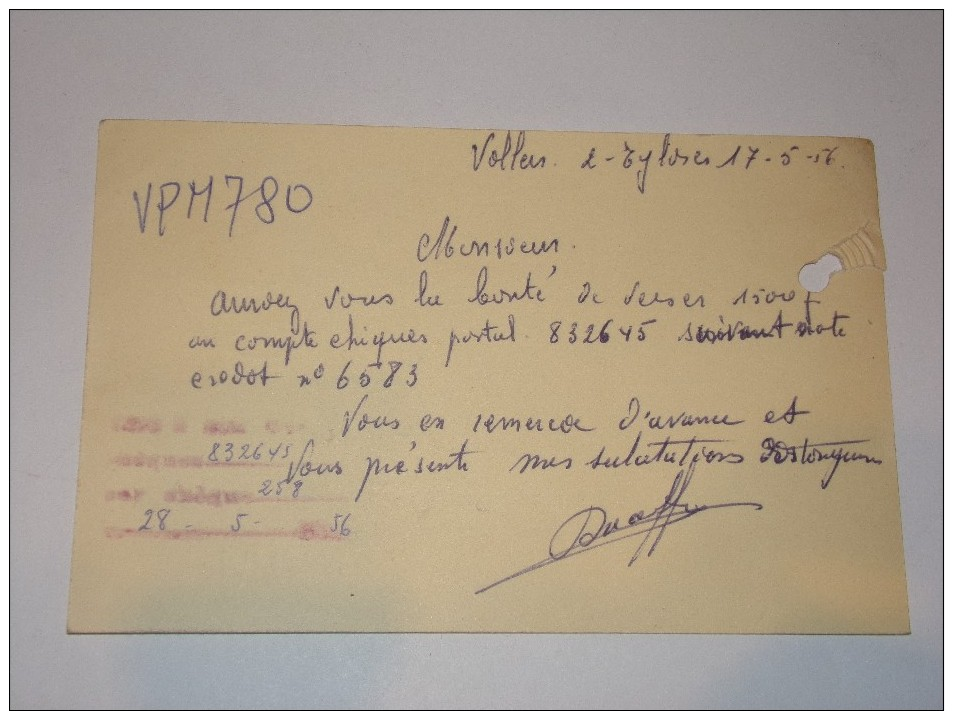 Vollers. 2-Eglises 17-5-56.
VPM780
Monsieur.
auriez vous la bonté de verser 1500 f
au compte chèques postal. 832645 suivant note
credit n° 6583
Vous en remercie d'avance et
Vous présente mes salutations
832645
258
28 - 5 - 56